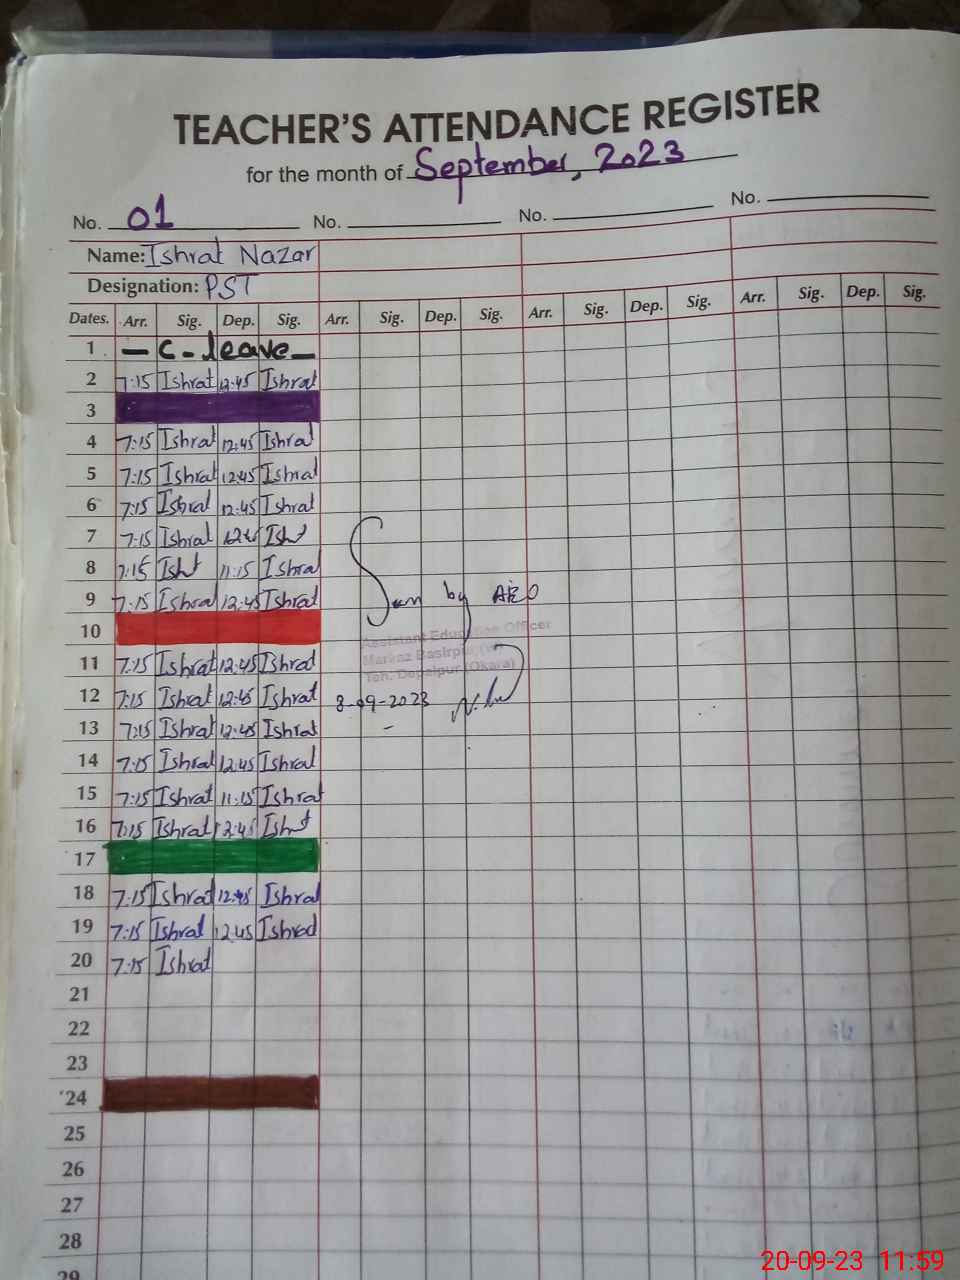 TEACHER'S ATTENDANCE REGISTER
for the month of September, 2023
No. 01 No. No. No.
Name: Ishrat Nazar
Designation: PST
Dates. Arr. Sig. Dep. Sig. Arr. Sig. Dep. Sig. Arr. Sig. Dep. Sig. Arr. Sig. Dep. Sig.
1 - C-leave -
2 7:15 Ishrat 12:45 Ishrat
3
4 7:15 Ishrat 12:45 Ishrat
5 7:15 Ishrat 12:45 Ishrat
6 7:15 Ishrat 12:45 Ishrat
7 7:15 Ishrat 12:45 Isht
8 7:15 Isht 11:15 Ishrat
9 7:15 Ishrat 12:45 Ishrat
Seen by AEO
10
Assistant Education Officer
Markaz Basirpur (W)
Teh. Depalpur (Okara)
11 7:15 Ishrat 12:45 Ishrat
12 7:15 Ishrat 12:45 Ishrat
8-09-2023
13 7:15 Ishrat 12:45 Ishrat
14 7:15 Ishrat 12:45 Ishrat
15 7:15 Ishrat 11:15 Ishrat
16 7:15 Ishrat 12:45 Isht
17
18 7:15 Ishrat 12:45 Ishrat
19 7:15 Ishrat 12:45 Ishrat
20 7:15 Ishrat
21
22
23
24
25
26
27
28
29
20-09-23 11:59